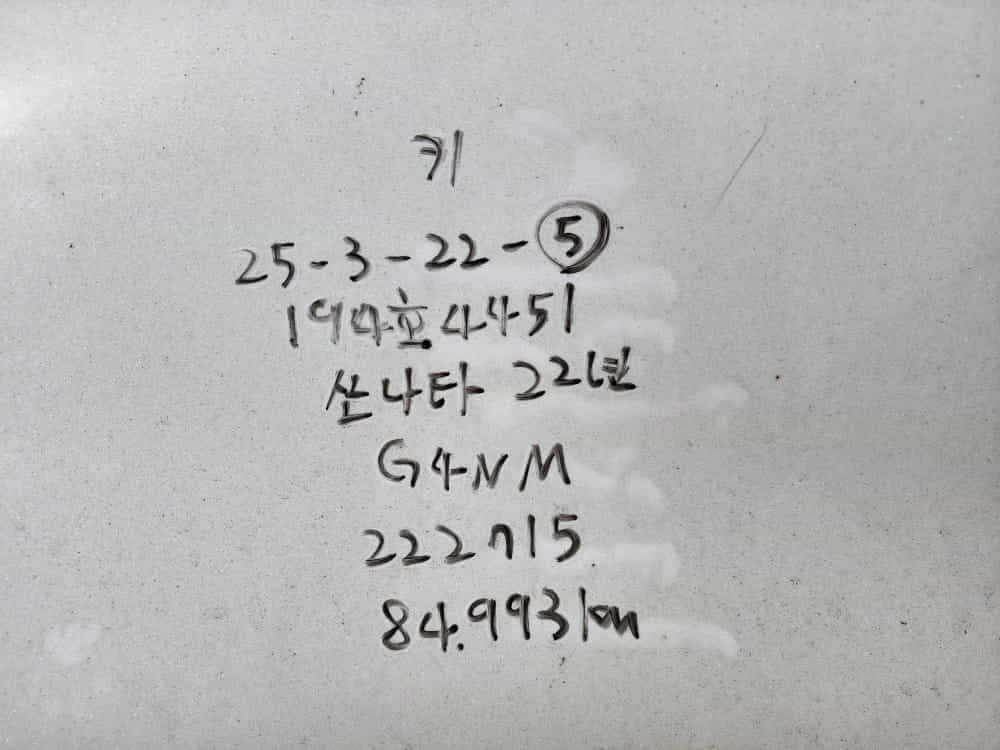 키
25-3-22-⑤
194호4451
쏘나타 22년
G4NM
222715
84.993km